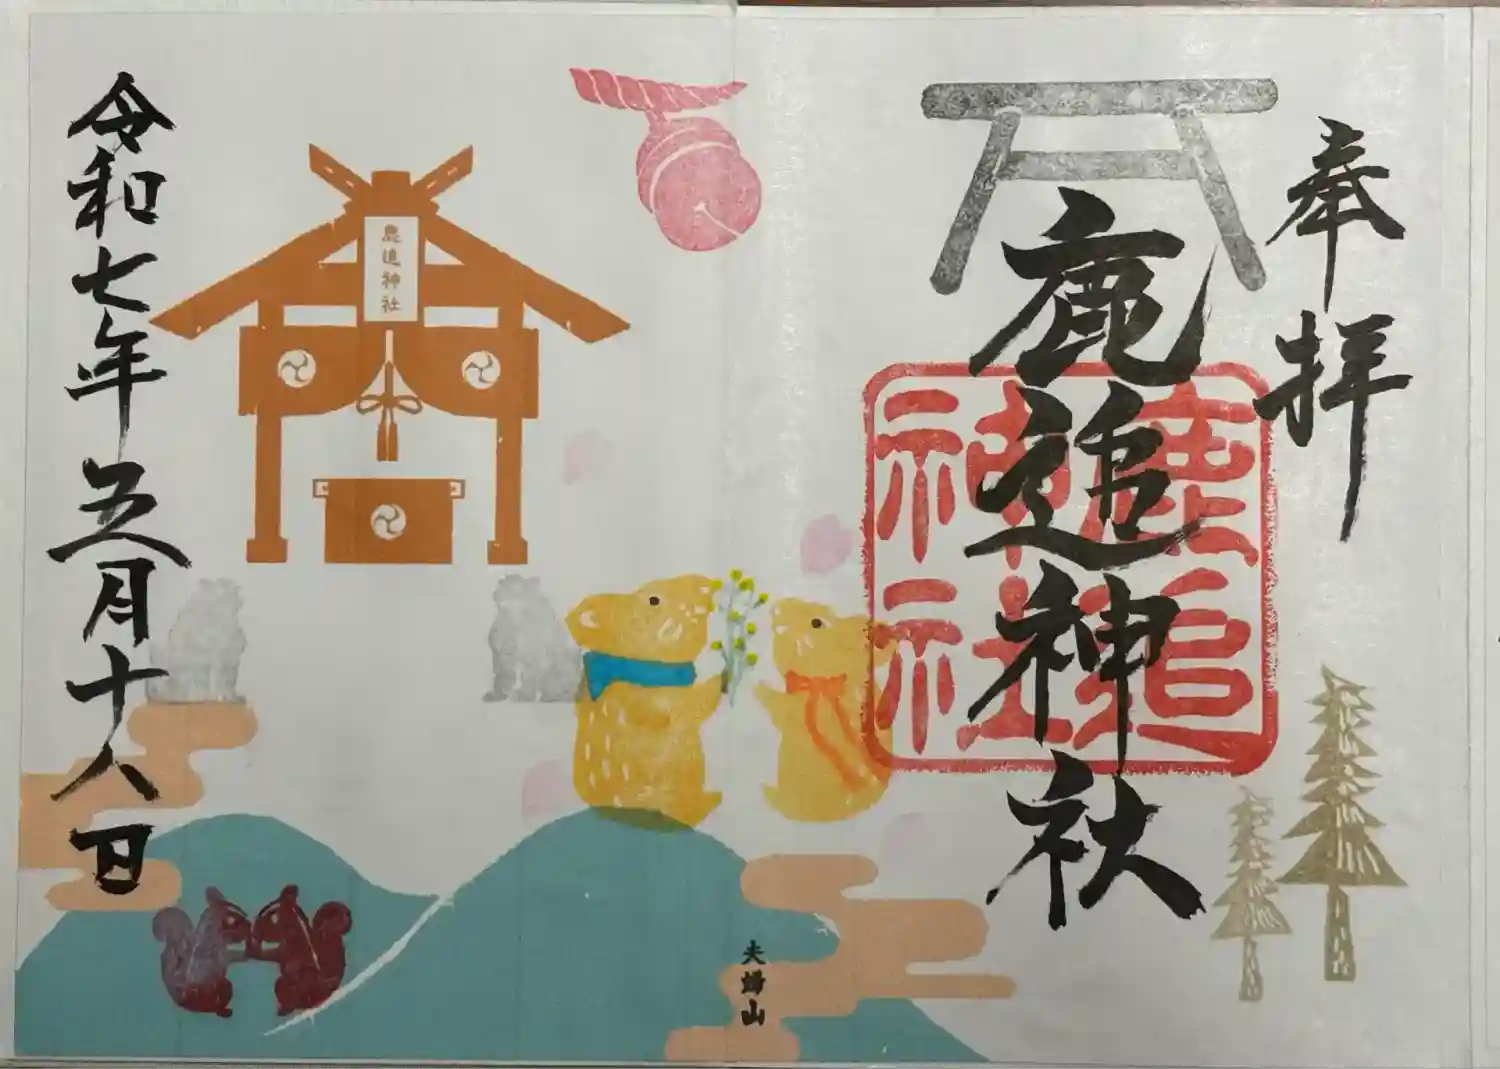 奉拝
鹿追神社
鹿追神社
鹿追神社
夫婦山
令和七年五月十八日